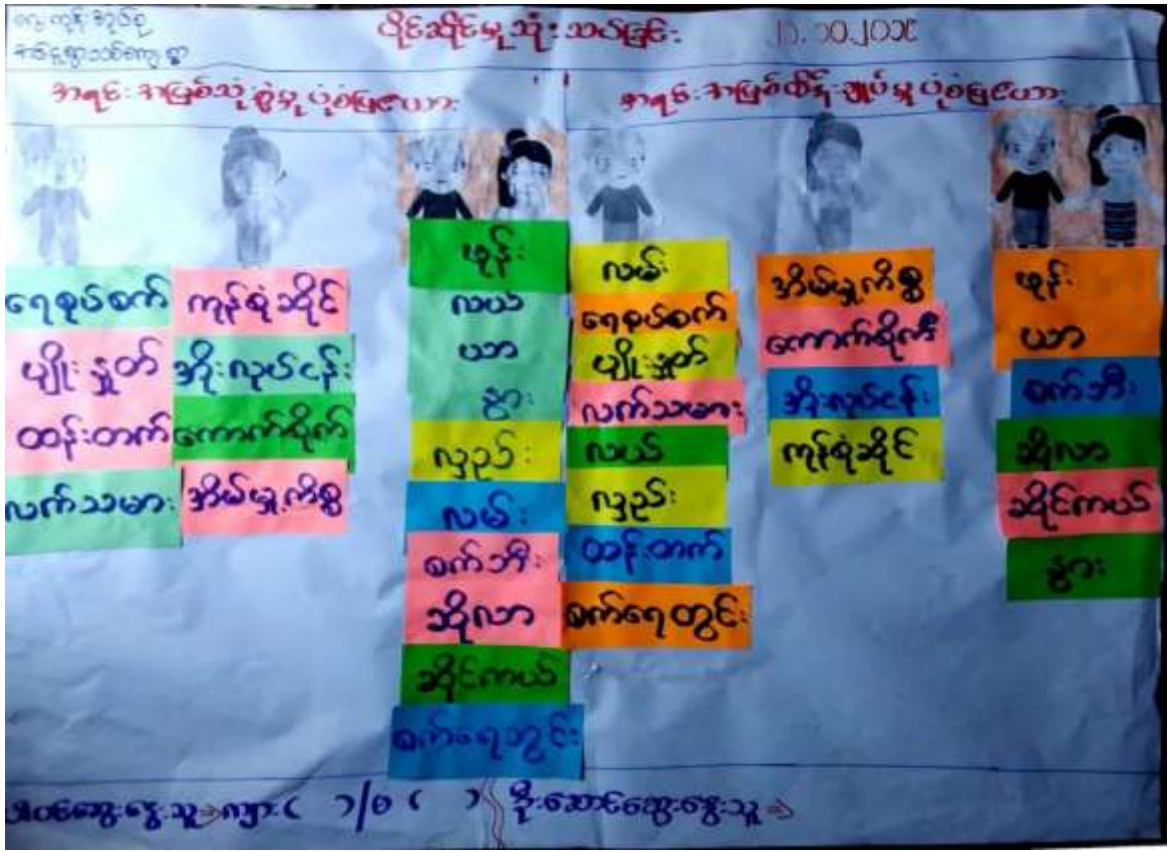 ပိုင်ဆိုင်မှုသုံးသပ်ခြင်း
အရင်းအမြစ်သုံးစွဲမှုပုံစံမြဇယား
အရင်းအမြစ်ထိန်းချုပ်မှုပုံစံမြဇယား
ရေစုပ်စက်
ပျိုးနှုတ်
ထန်းတက်
လက်သမား
ကုန်စုံဆိုင်
အိုးလုပ်ငန်း
ကောက်စိုက်
အိမ်မှု့ကိစ္စ
ဖုန်း
လယ်
ယာ
နွား
လှည်း
လမ်း
စက်ဘီး
ဆိုလာ
ဆိုင်ကယ်
စက်ရေတွင်း
လမ်း
ရေစုပ်စက်
ပျိုးနှုတ်
လက်သမား
လယ်
လှည်း
ထန်းတက်
စက်ရေတွင်း
အိမ်မှု့ကိစ္စ
ကောက်စိုက်
အိုးလုပ်ငန်း
ကုန်စုံဆိုင်
ဖုန်း
ယာ
စက်ဘီး
ဆိုလာ
ဆိုင်ကယ်
နွား
ပါဝင်ဆွေးနွေးသူ⇒ကျား ( )/မ ( ) ဦးဆောင်ဆွေးနွေးသူ⇒